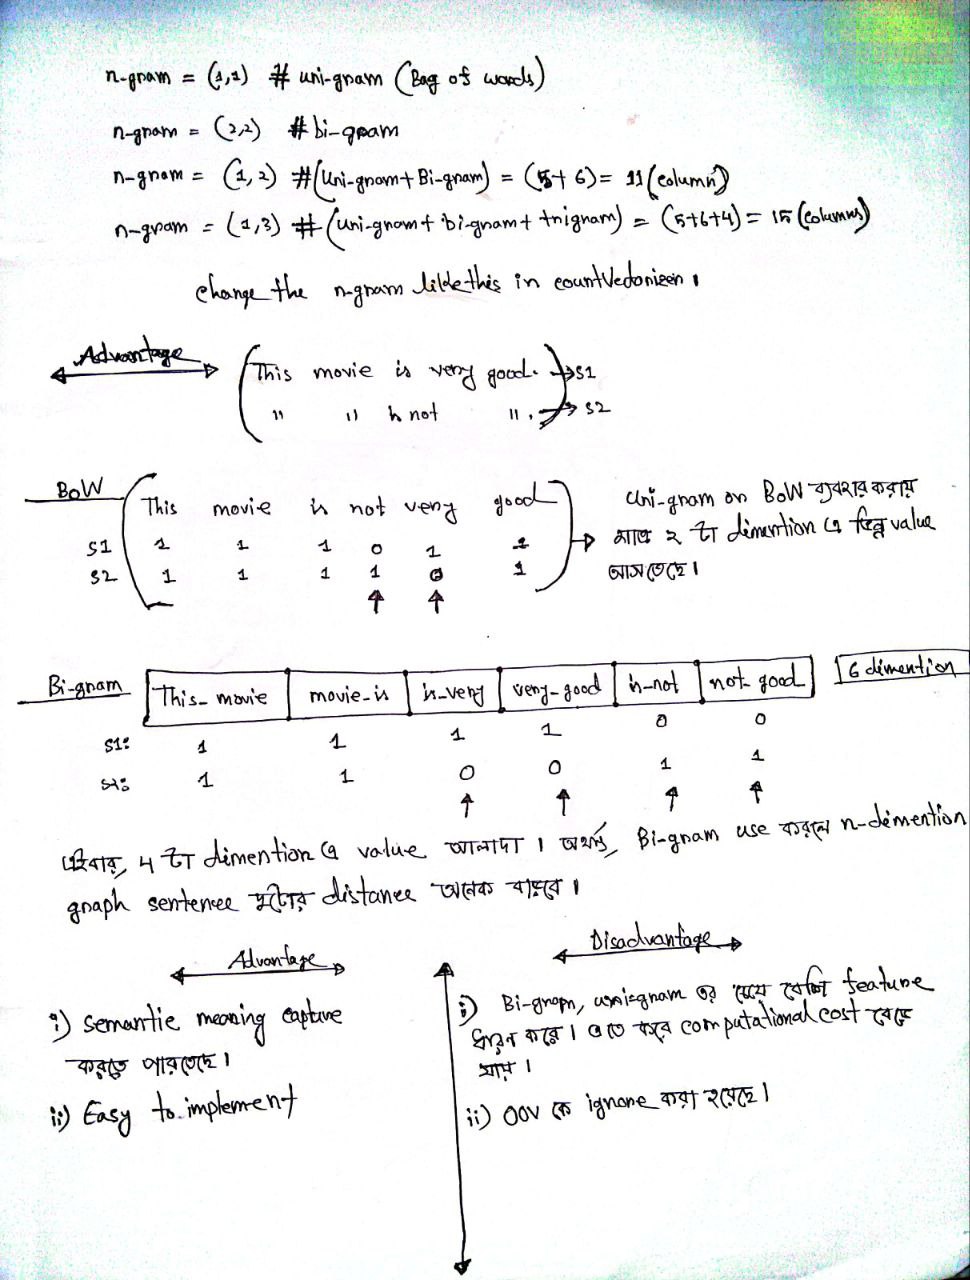 n-gram = (1,1) # uni-gram (Bag of words)
n-gram = (2,2) # bi-gram
n-gram = (1,2) #(Uni-gram+Bi-gram) = (5+6)= 11(column)
n-gram = (1,3) # (uni-gram+bi-gram+trigram) = (5+6+4)= 15(columns)
change the n-gram like this in countVectorizer।
Advantage
This movie is very good. → S1
" " is not ". → S2
BoW
This movie is not very good
S1 1 1 1 0 1 1
S2 1 1 1 1 0 1
Uni-gram or BoW ব্যবহার করায়
মাত্র ২ টা dimention এ ভিন্ন value
আসতেছে।
Bi-gram This-movie movie-is is-very very-good is-not not-good 6 dimention
S1: 1 1 1 1 0 0
S2: 1 1 0 0 1 1
এইবার, 4 টা dimention এ value আলাদা। অর্থাৎ, Bi-gram use করলে n-dimention
graph sentence দুটোর distance অনেক বাড়বে।
Advantage
i) semantic meaning capture
করতে পারতেছে।
ii) Easy to implement
Disadvantage
i) Bi-gram, unigram এর চেয়ে বেশি feature
ধারন করে। এতে করে computational cost বেড়ে
যায়।
ii) OOV কে ignore করা হয়েছে।